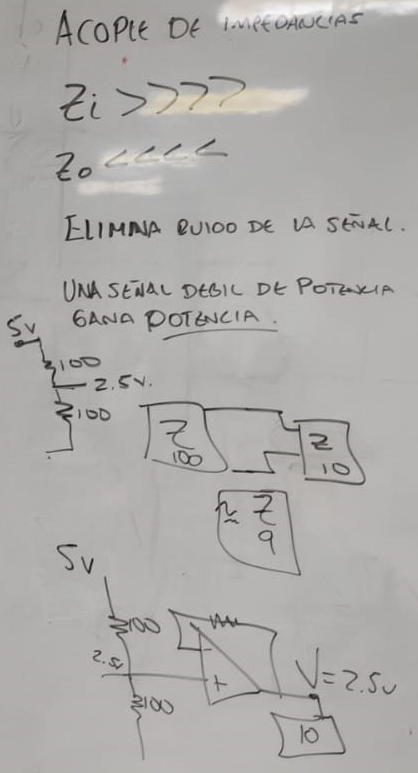 ACOPLE DE IMPEDANCIAS
Zi >>>>
Zo <<<<
ELIMINA RUIDO DE LA SEÑAL.
UNA SEÑAL DEBIL DE POTENCIA
GANA POTENCIA.
5V
100
2.5V.
100
Z
100
Z
10
≈ Z
9
5V
100
2.5V
+
100
V=2.5V
10